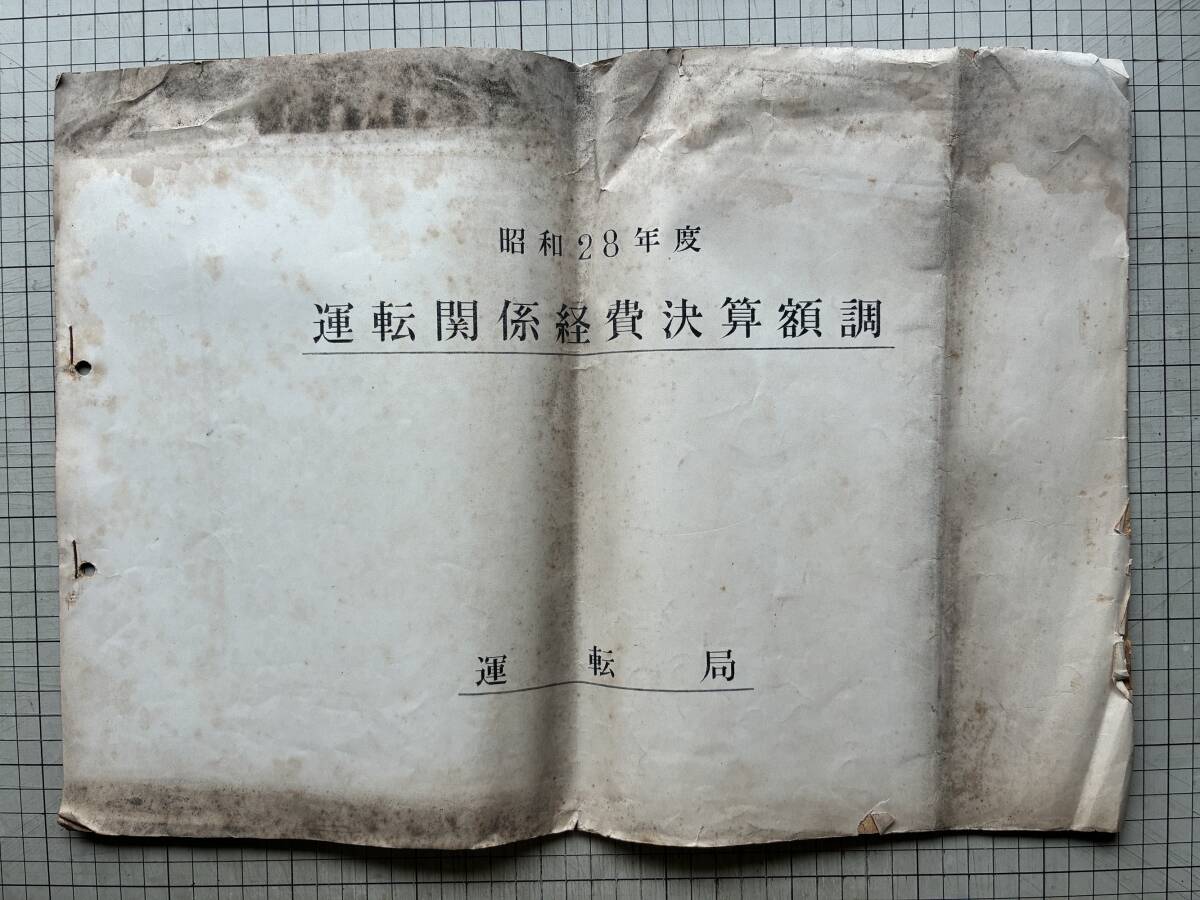 昭和28年度
運転関係経費決算額調
運転局